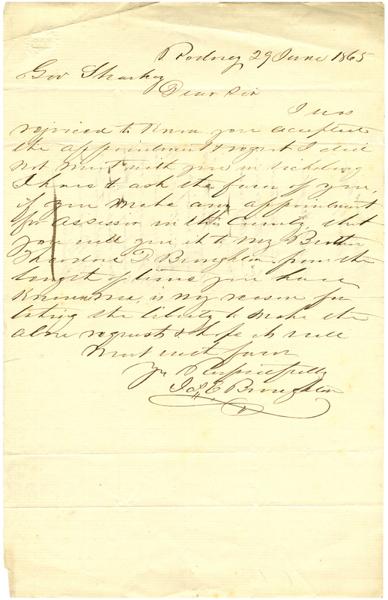 Rodney 29 June 1865
Gov Sharkey
Dear Sir
I was
rejoiced to know you accepted
the appointment & regret I did
not meet with you in Vicksburg
I have to ask the favor of you,
if you make any appointment
for assessor in this County, that
you will give it to my Brother
Theodore D. Broughton from the
length of time you have
known me, is my reason for
taking the liberty to make the
above request & hope it will
meet with favor
Yrs Respectfully
Broughton